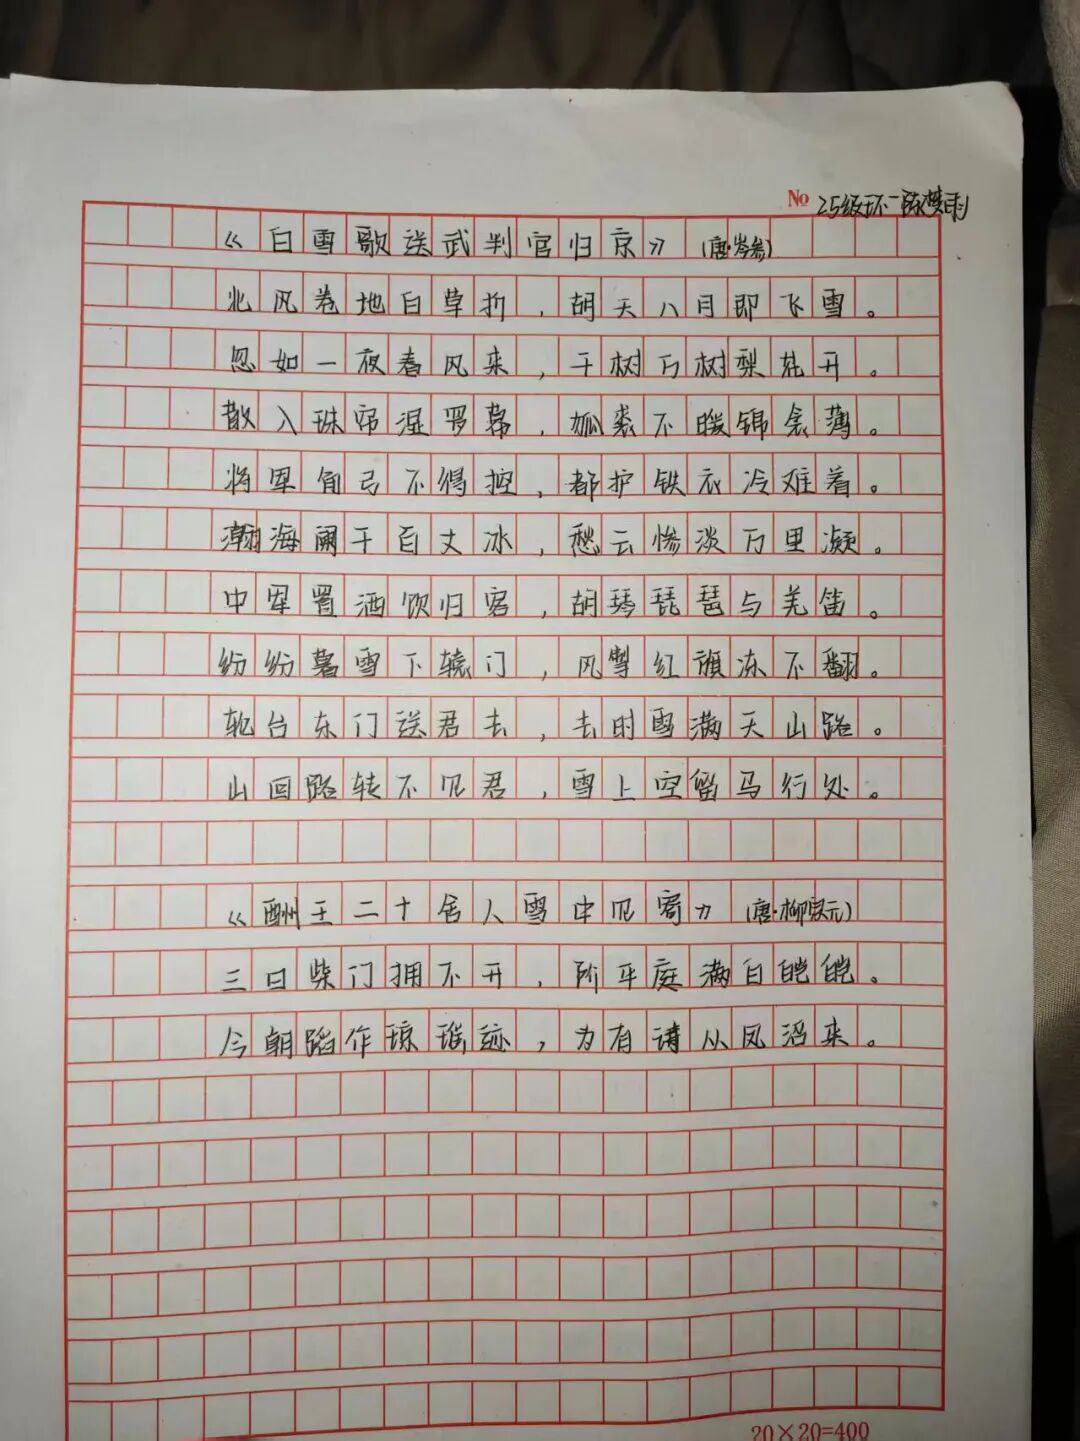 No 25级环一陈梦雨
《白雪歌送武判官归京》(唐·岑参)
北风卷地白草折,胡天八月即飞雪。
忽如一夜春风来,千树万树梨花开。
散入珠帘湿罗幕,狐裘不暖锦衾薄。
将军角弓不得控,都护铁衣冷难着。
瀚海阑干百丈冰,愁云惨淡万里凝。
中军置酒饮归客,胡琴琵琶与羌笛。
纷纷暮雪下辕门,风掣红旗冻不翻。
轮台东门送君去,去时雪满天山路。
山回路转不见君,雪上空留马行处。
《酬王二十舍人雪中见寄》(唐·柳宗元)
三日柴门拥不开,阶平庭满白皑皑。
今朝蹈作琼瑶迹,为有诗从凤沼来。
20×20=400